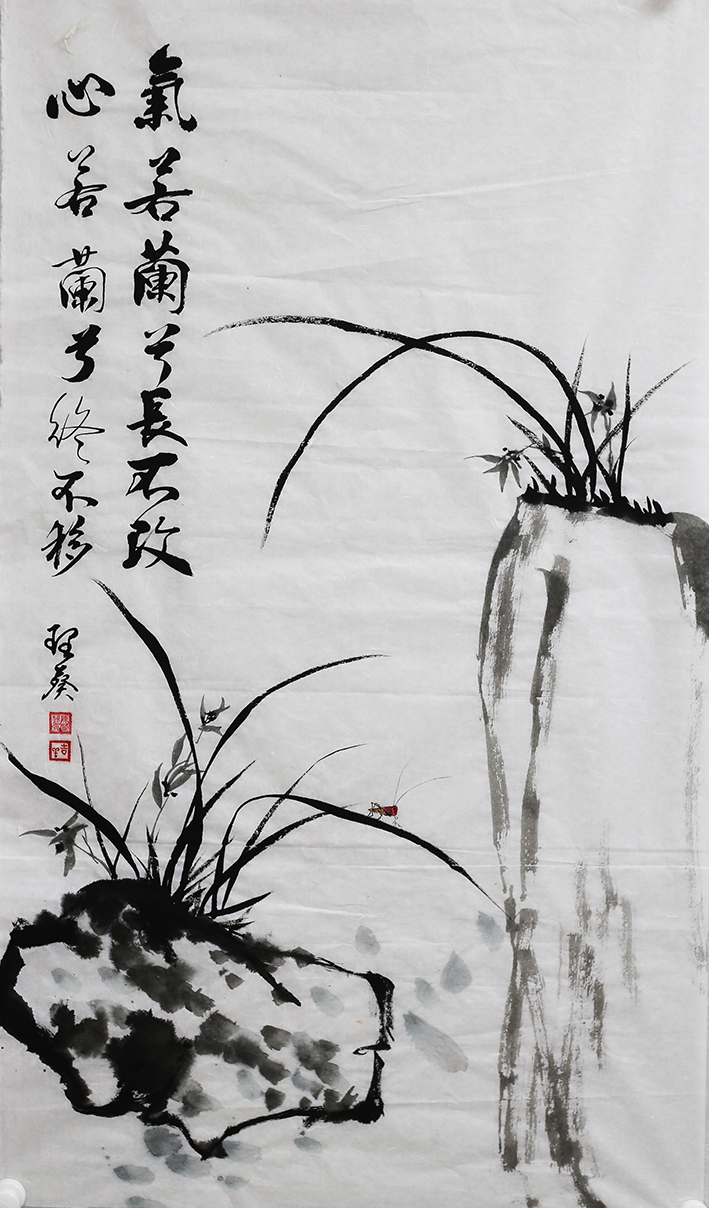 氣若蘭兮長不改
心若蘭兮終不移
理葵